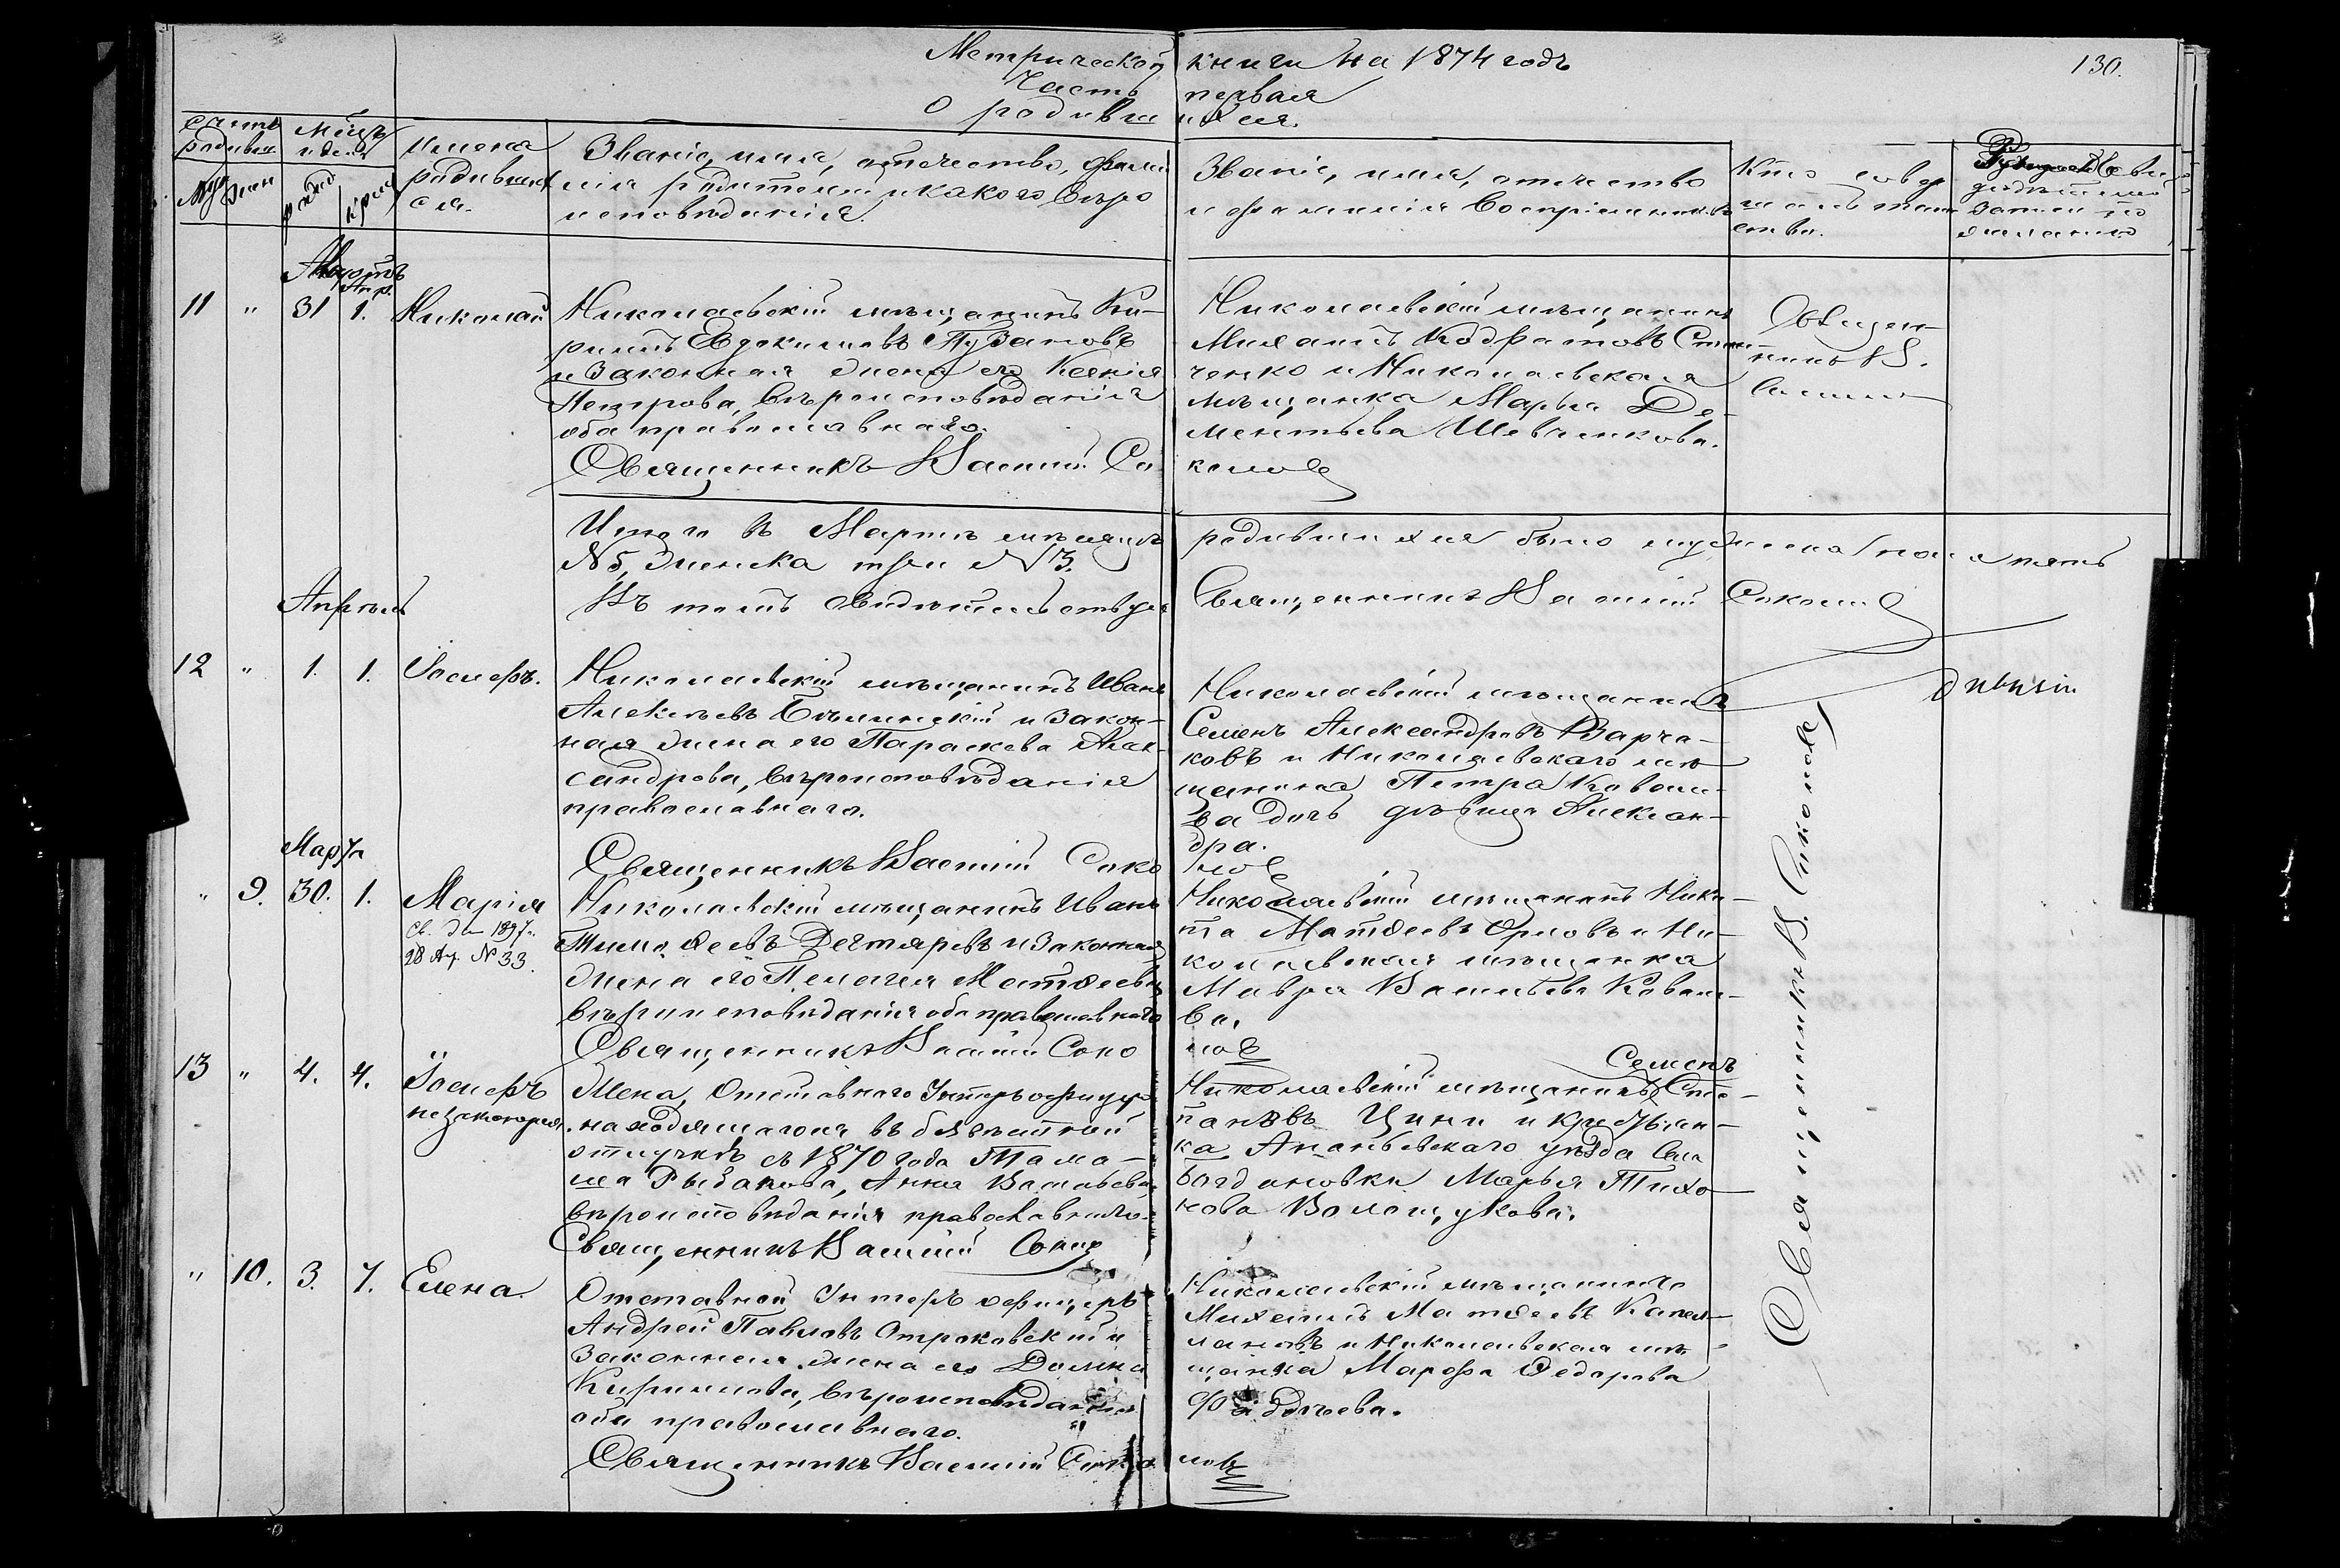 Метрической книги на 1874 годъ
130.
Часть первая
О родившихся.
Счетъ родивш.
Муж. Жен.
Мѣцъ и день
рожд. крещ.
Имена родившихся.
Званіе, имя, отечество, фамилія родителей и какого вѣроисповѣданія.
Званіе, имя, отчество и фамилія воспріемниковъ
Кто совершалъ таинство.
Апр.
11 " 31 1. Николай
Николаевскій мѣщанинъ Ки-
рилъ Евдокимовъ Пузановъ
и законная жена его Ксенія
Петрова, вѣроисповѣданія
оба православнаго.
Священникъ Василій Со
Николаевскій мѣщанинъ
Михаилъ Кодратовъ
ченко и Николаевская
мѣщанка Марья Де-
ментьева Шевченкова.
коловъ
Священ-
никъ В.
Итого въ Мартѣ мѣсяцѣ родившихся было мужеска пола пять
№ 5, женска три № 3.
Въ томъ свидѣтельствую Священникъ Василій Соколовъ
Апрѣль
12 " 1. 1. Іосифъ.
Николаевскій мѣщанинъ Иванъ
Алексѣевъ Бѣлинскій и закон-
ная жена его Параскева Алек-
сандрова, вѣроисповѣданія
православнаго.
Священникъ Василій Соко
Николаевскій мѣщанинъ
Семенъ Александровъ Варча-
ковъ и Николаевскаго мѣ-
щанина Петра Ковале-
ва дочь дѣвица Алексан-
дра.
ловъ
Марта
" 9. 30. 1. Марія
1897.
28 Ап. № 33.
Николаевскій мѣщанинъ Иванъ
Тимоѳеевъ Дегтяревъ и законная
жена его Пелагея Матвѣева
вѣроисповѣданія оба православнаго
Священникъ Василій Соко
Николаевскій мѣщанинъ Ники-
та Матвѣевъ Орловъ и Ни-
колаевская мѣщанка
Мавра Васильева Ковале-
ва.
ловъ
13 " 4. 4. Іосифъ
незаконорож.
Жена Отставного Унтеръ офицера
находящагося въ безвѣстной
отлучкѣ съ 1870 года Тама-
ша Рыбакова, Анна Васильева,
вѣроисповѣданія православнаго.
Священникъ Василій Сокол
Семенъ
Николаевскій мѣщанинъ Сте-
пановъ Цини и крестьян-
ка Ананьевскаго уѣзда села
Богдановки Марья Тихо-
нова Волощукова.
" 10. 3. 7. Елена
Отставной Унтеръ офицеръ
Андрей Павловъ Отроковскій и
законная жена его Домна
Кирилова, вѣроисповѣданія
оба православнаго.
Священникъ Василій Соко
Николаевскій мѣщанинъ
Михаилъ Матвѣевъ Капел-
лановъ и Николаевская мѣ-
щанка Марфа Ѳедорова
Фадѣева.
ловъ
Священникъ В. Соколовъ